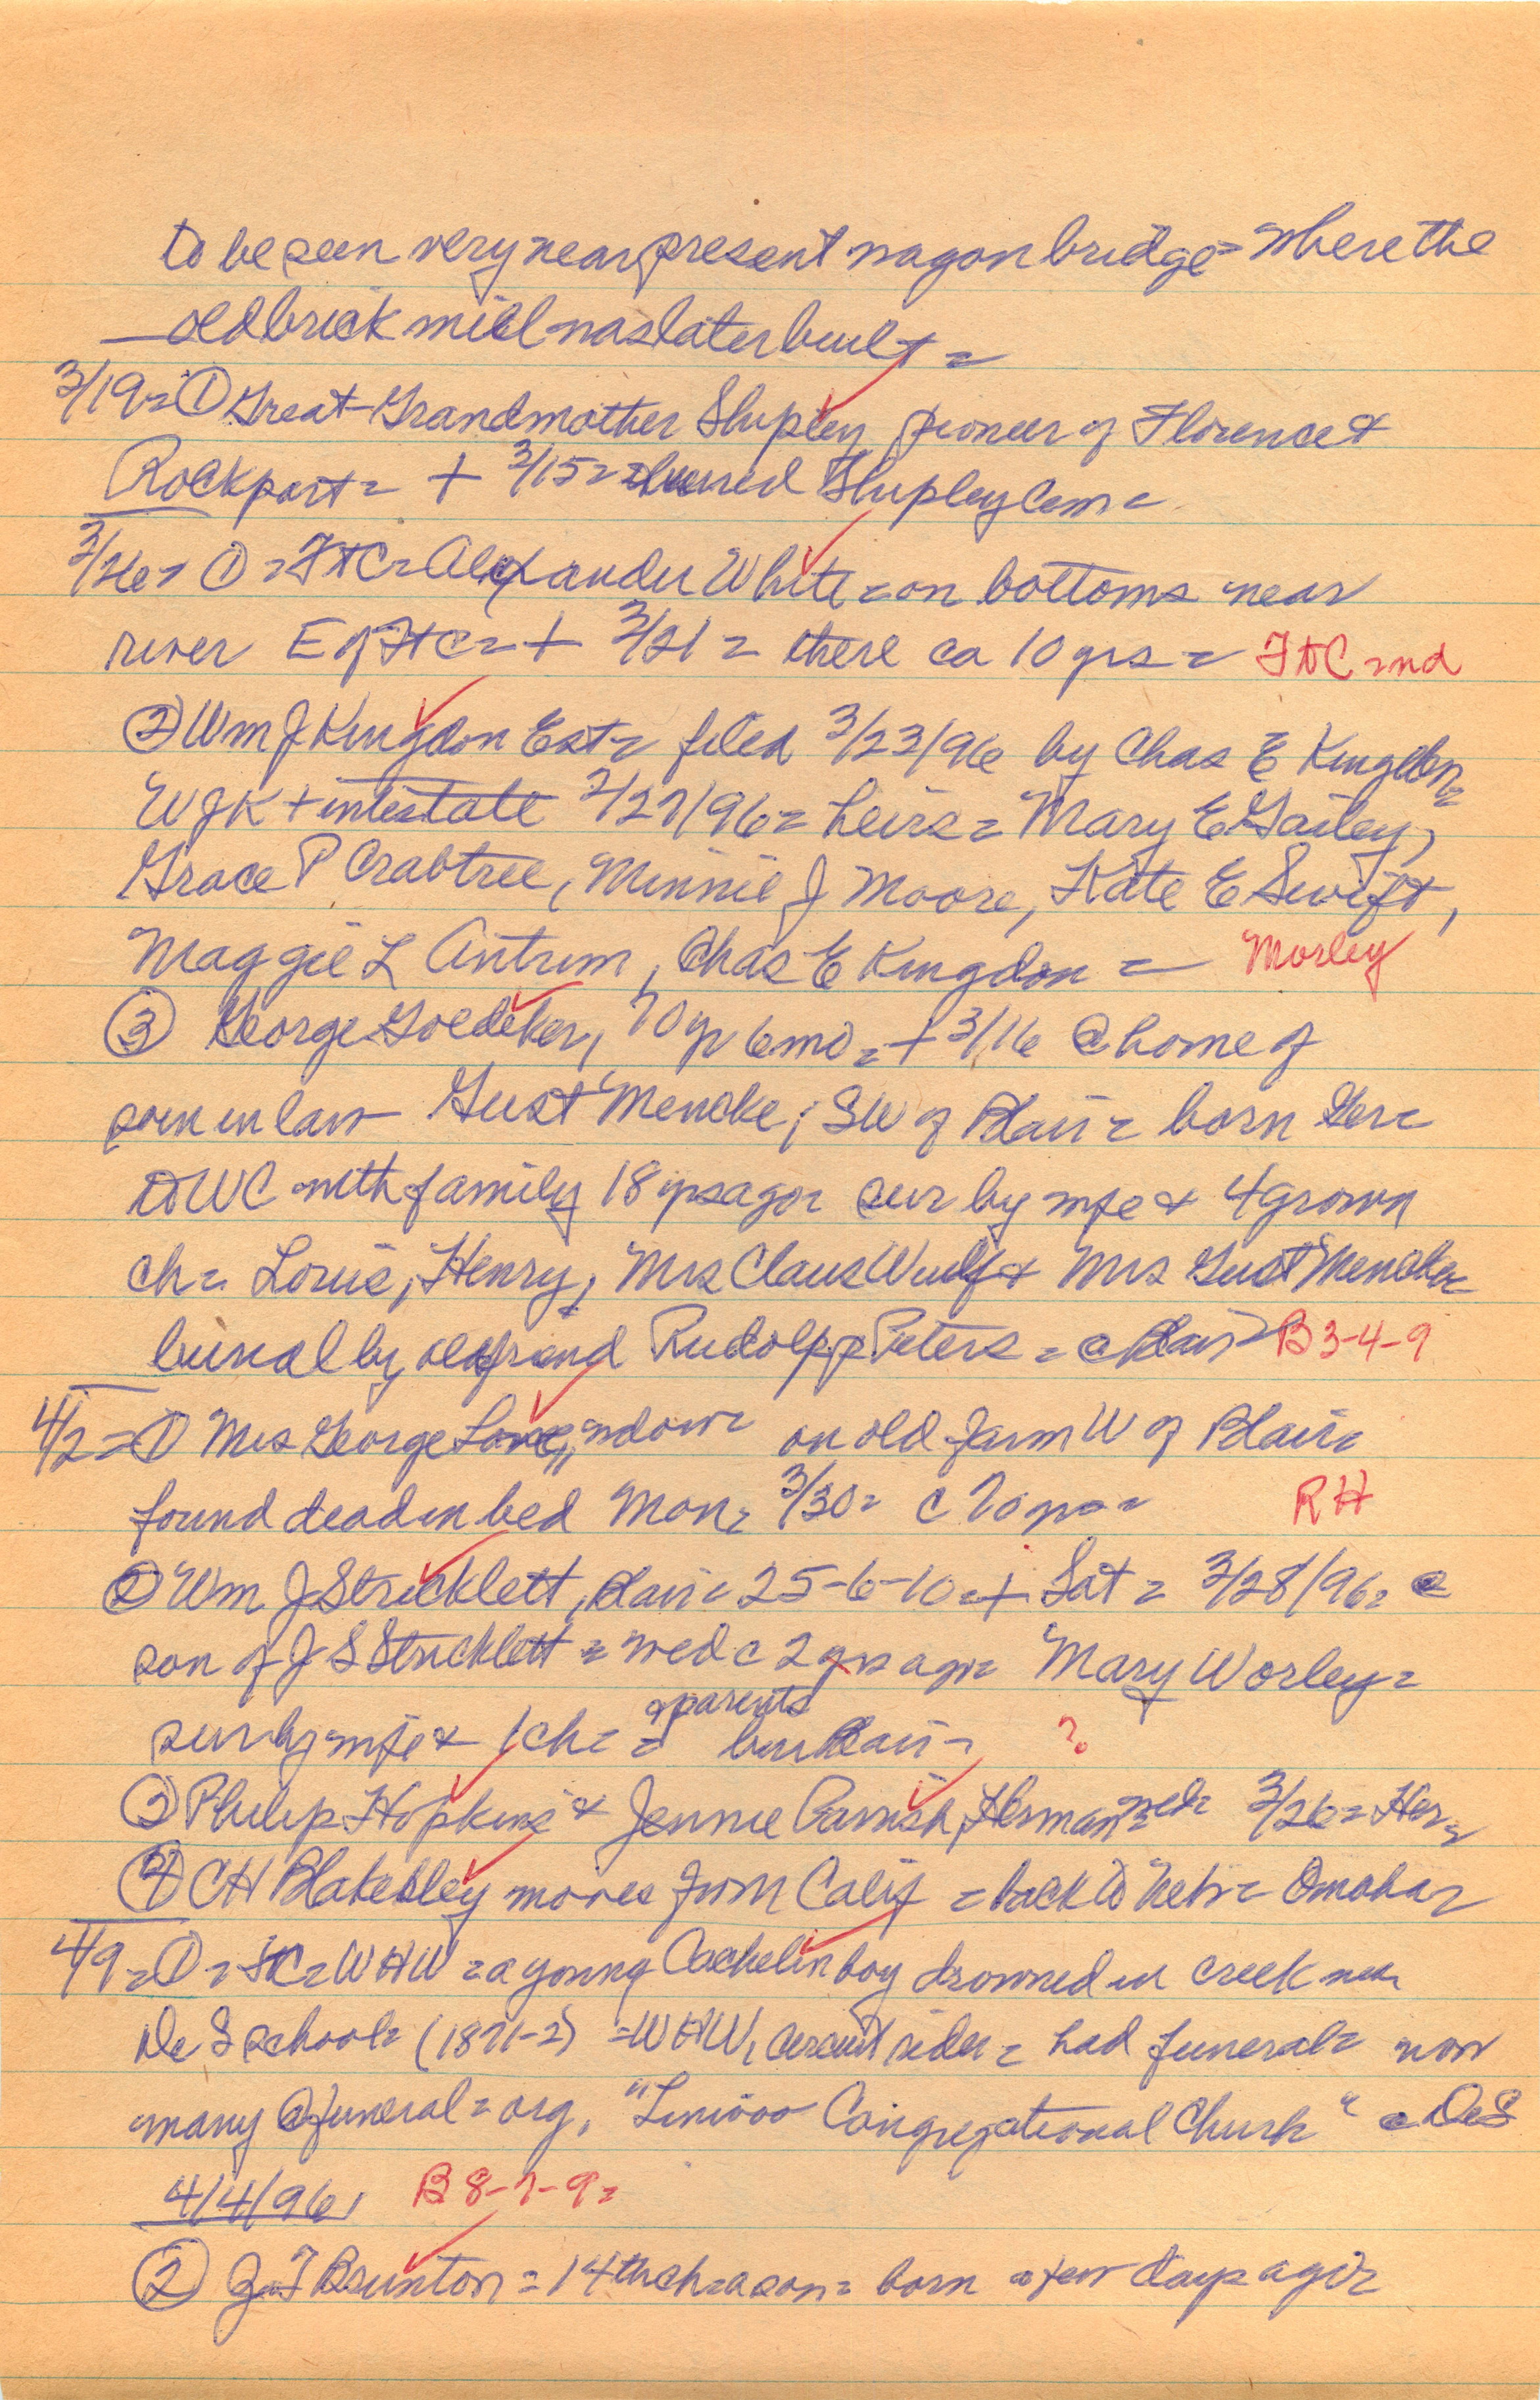 to be seen very near present wagon bridge = where the
old brick mill was later built =
3/19 = ① Great-Grandmother Shipley pioneer of Florence &
Rockport = + 3/15 = buried Shipley Cem =
3/26 = ① = FtC = Alexander White = on bottoms near
river E of FtC = + 3/21 = there ca 10 yrs = FtC = nd
② Wm J Kingdon Est = filed 3/23/96 by Chas E Kingdon =
WJK + intestate 2/27/96 = heirs = Mary E Gailey,
Grace P Crabtree, Minnie J Moore, Kate E Swift,
Maggie L Antrim, Chas E Kingdon = Morley
③ George Goedeker, 70 yr 6 mo = + 3/16 @ home of
son in law Gust Mencke, SW of Blair = born Ger =
to WC with family 18 yrs ago = sur by wife & 4 grown
ch = Louis, Henry, Mrs Claus Wulf & Mrs Gust Mencke =
burial by old friend Rudolph Peters = @ Blair = B 3-4-9
4/2 = ① Mrs George Love, widow = on old farm W of Blair =
found dead in bed Mon = 3/30 = c 70 yrs = RH
② Wm J Stricklett, Blair = 25-6-10 = + Sat = 3/28/96 =
son of J S Stricklett = wed c 2 yrs ago = Mary Worley =
sur by wife & 1 ch = & parents = bur Blair = ?
③ Philip Hopkins & Jennie Parrish, Herman = wed = 3/26 = Her =
④ CH Blakesley moves from Calif = back to Neb = Omaha =
4/9 = ① = = WHW = a young Cachelin boy drowned in creek near
De S school = (1871-2) = WHW, circuit rider = had funeral = now
many @ funeral = org. "Congregational Church" @ DeS
4/4/96, B 8-7-9 =
② J T Brunton = 14th ch = a son = born a few days ago =